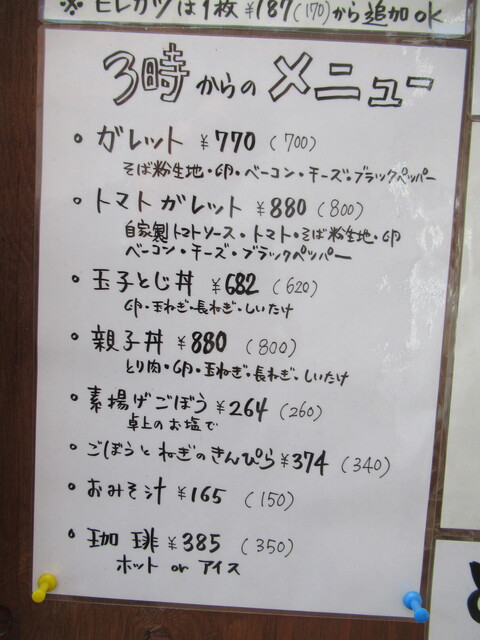 ※ ヒレカツは1枚 ¥187(170)から追加OK
3時からのメニュー
• ガレット ¥770 (700)
そば粉生地・卵・ベーコン・チーズ・ブラックペッパー
• トマトガレット ¥880 (800)
自家製トマトソース・トマト・そば粉生地・卵
ベーコン・チーズ・ブラックペッパー
• 玉子とじ丼 ¥682 (620)
卵・玉ねぎ・長ねぎ・しいたけ
• 親子丼 ¥880 (800)
とり肉・卵・玉ねぎ・長ねぎ・しいたけ
• 素揚げごぼう ¥264 (260)
卓上のお塩で
• ごぼうとねぎのきんぴら ¥374 (340)
• おみそ汁 ¥165 (150)
• 珈琲 ¥385 (350)
ホット or アイス